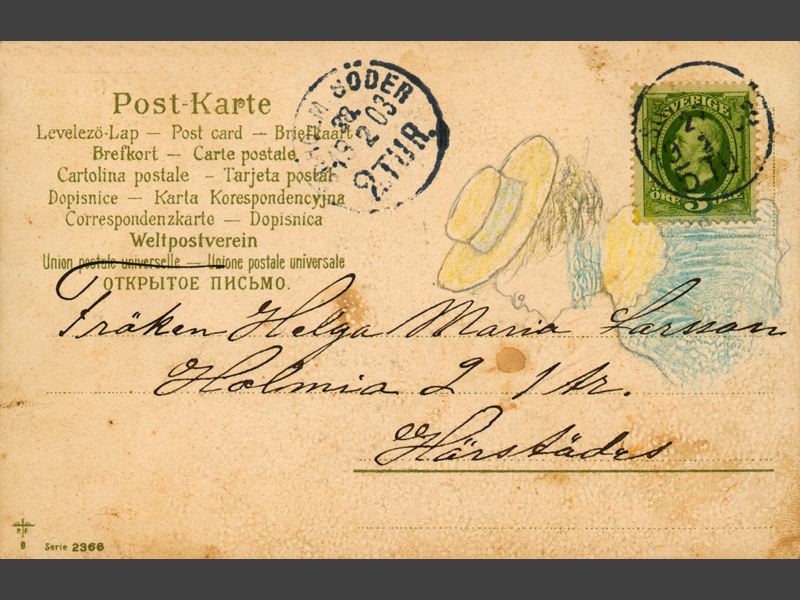 Post-Karte
Levelező-Lap — Post card — Briefkaart
Brefkort — Carte postale
Cartolina postale — Tarjeta postal
Dopisnice — Karta Korespondencyjna
Correspondenzkarte — Dopisnica
Weltpostverein
Union postale universelle — Unione postale universale
ОТКРЫТОЕ ПИСЬМО.
SÖDER
2 03
2 TUR.
SVERIGE
ÖRE 5
Fröken Helga Maria Larsson
Holmia 2 1 tr.
Härstädes
P. F.
B Serie 2366